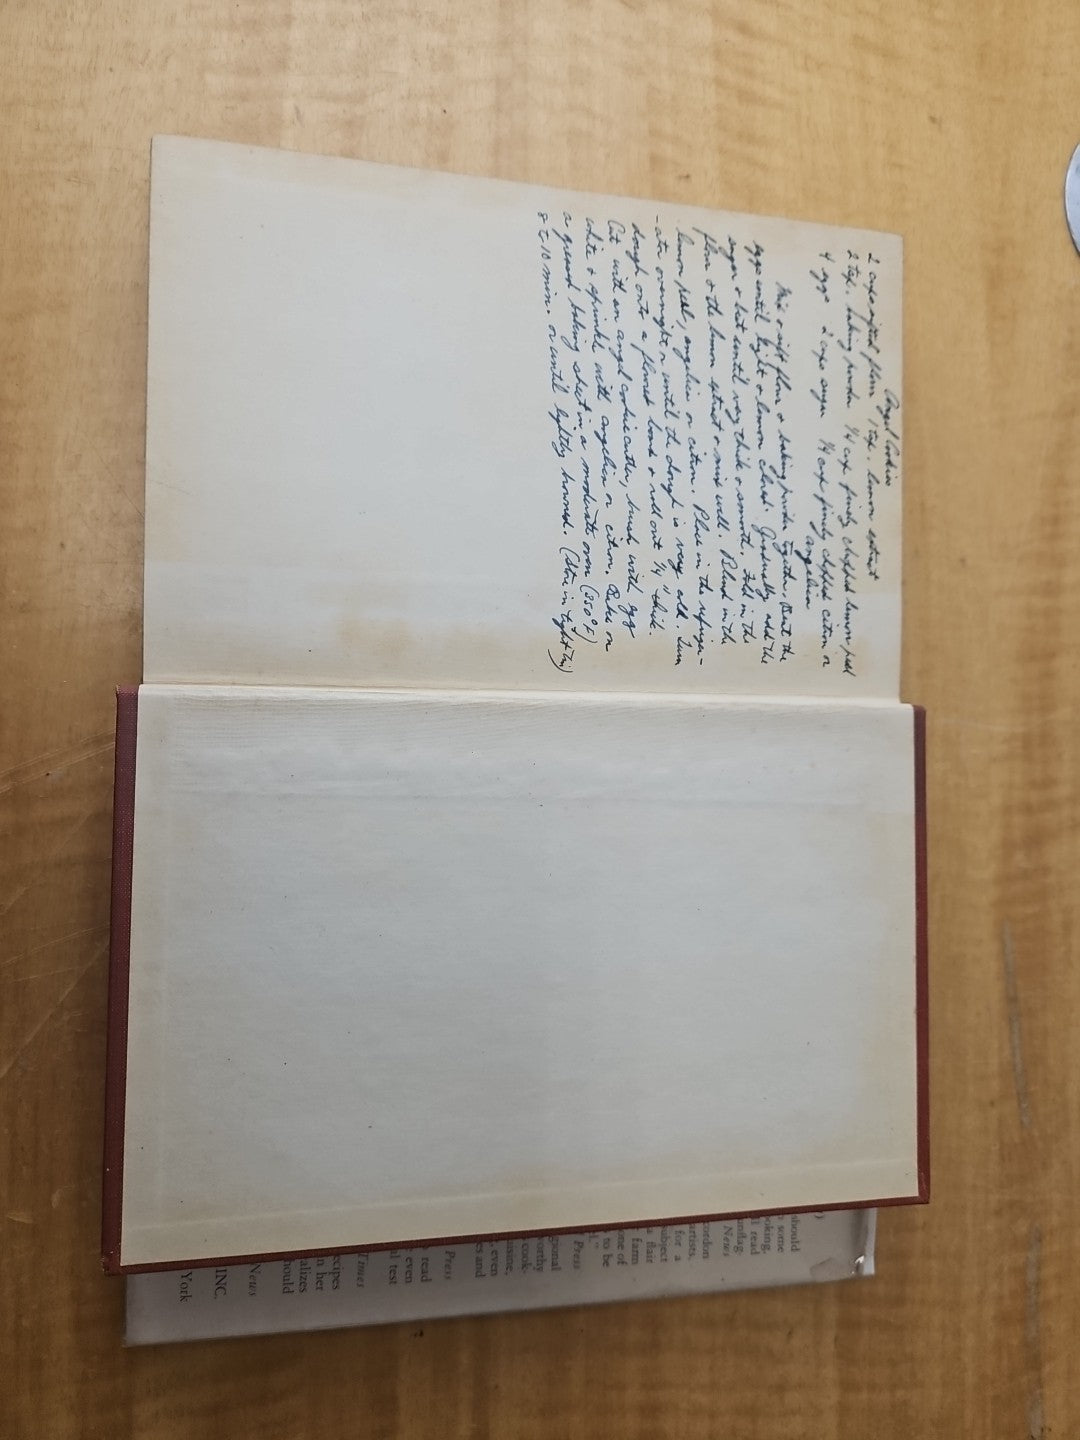 Angel Cookies
2 cups sifted flour 1 tsp. lemon extract
2 tsp. baking powder 1/4 cup finely chopped lemon peel
4 eggs 2 cups sugar 1/4 cup finely chopped citron or
angelica
Mix & sift flour & baking powder together. Beat the
eggs until light & lemon colored. Gradually add the
sugar & beat until very thick & smooth. Fold in the
flour & the lemon extract & mix well. Blend in the
lemon peel, angelica or citron. Place in the refriger-
-ator overnight or until the dough is very cold. Turn
dough onto a floured board & roll out 1/4" thick.
Cut with an angel cookie cutter, brush with egg
white & sprinkle with angelica or citron. Bake on
a greased baking sheet in a moderate oven (350°F)
8 to 10 min. or until lightly browned. (Store in tight tin)
)
should
some
oking,
ll read
anflag-
News
cordon
artistes.
for a
subject
a flair
farm
one of
to be
l."
Press
gional
worthy
cook-
uisine,
, even
es and
Press
read
even
al test
Times
ecipes
n her
ializes
hould
News
INC.
York